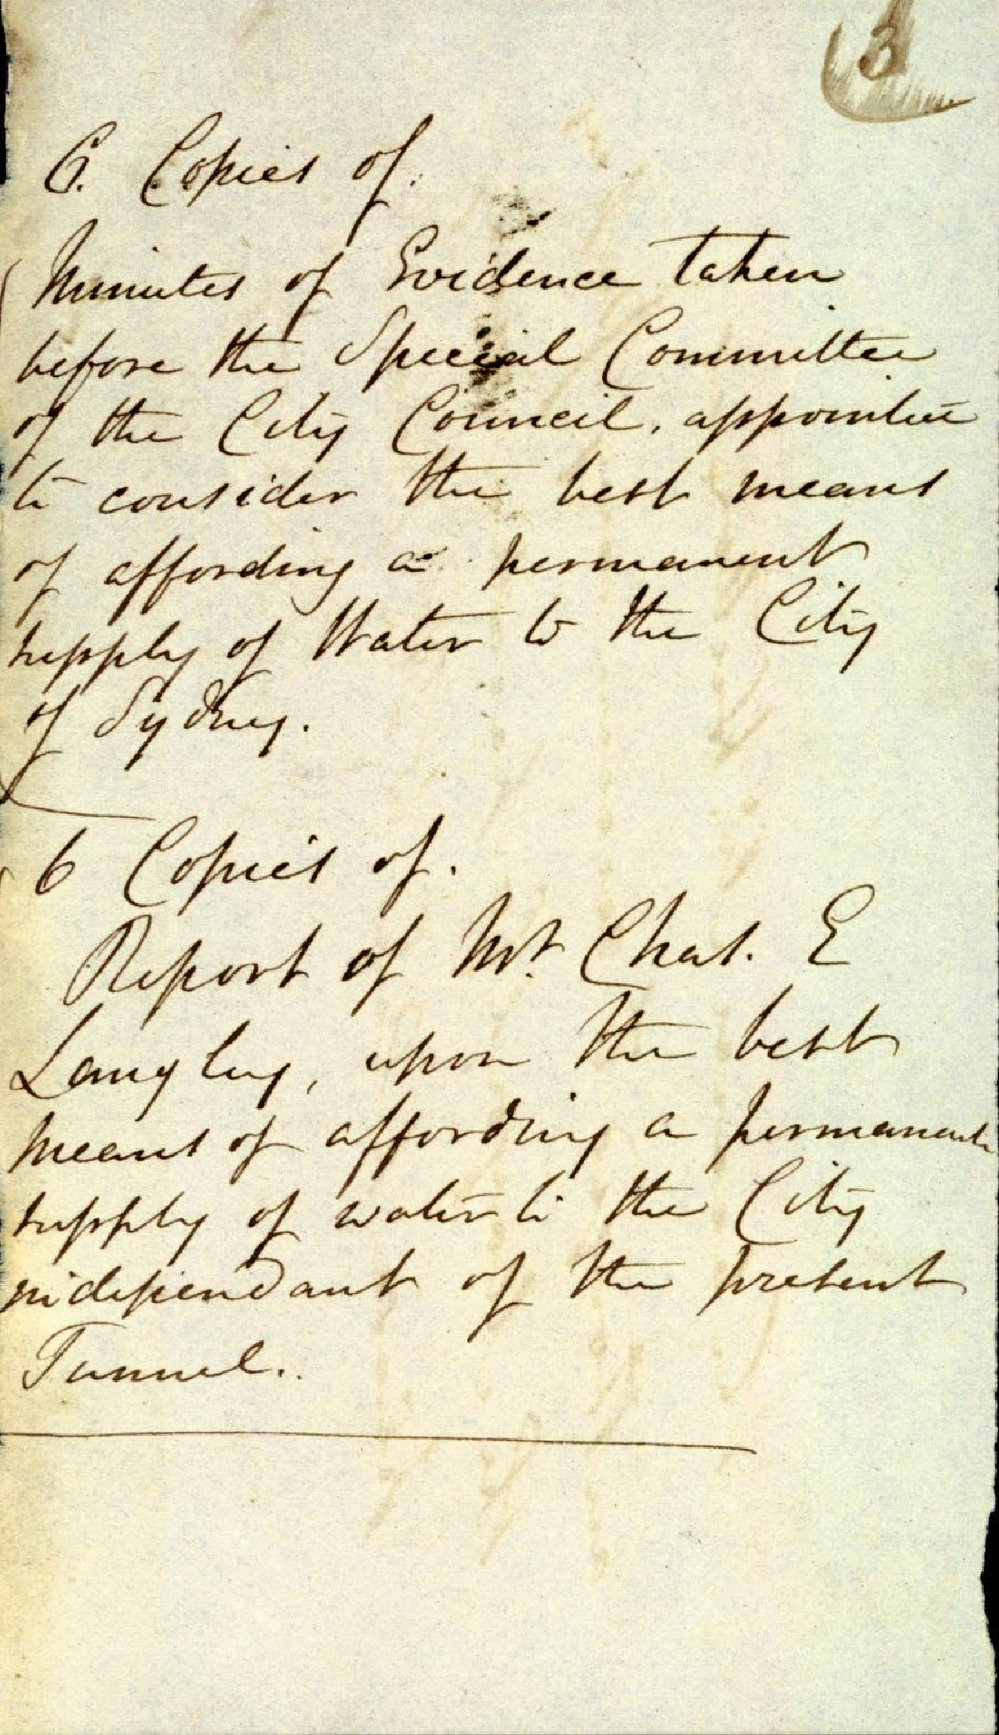 3
6. Copies of.
Minutes of Evidence taken
before the Special Committee
of the City Council, appointed
to consider the best means
of affording a permanent
supply of Water to the City
of Sydney.
6 Copies of.
Report of Mr. Chas. E
Langley, upon the best
means of affording a permanent
supply of water to the City
independant of the present
Tunnel.